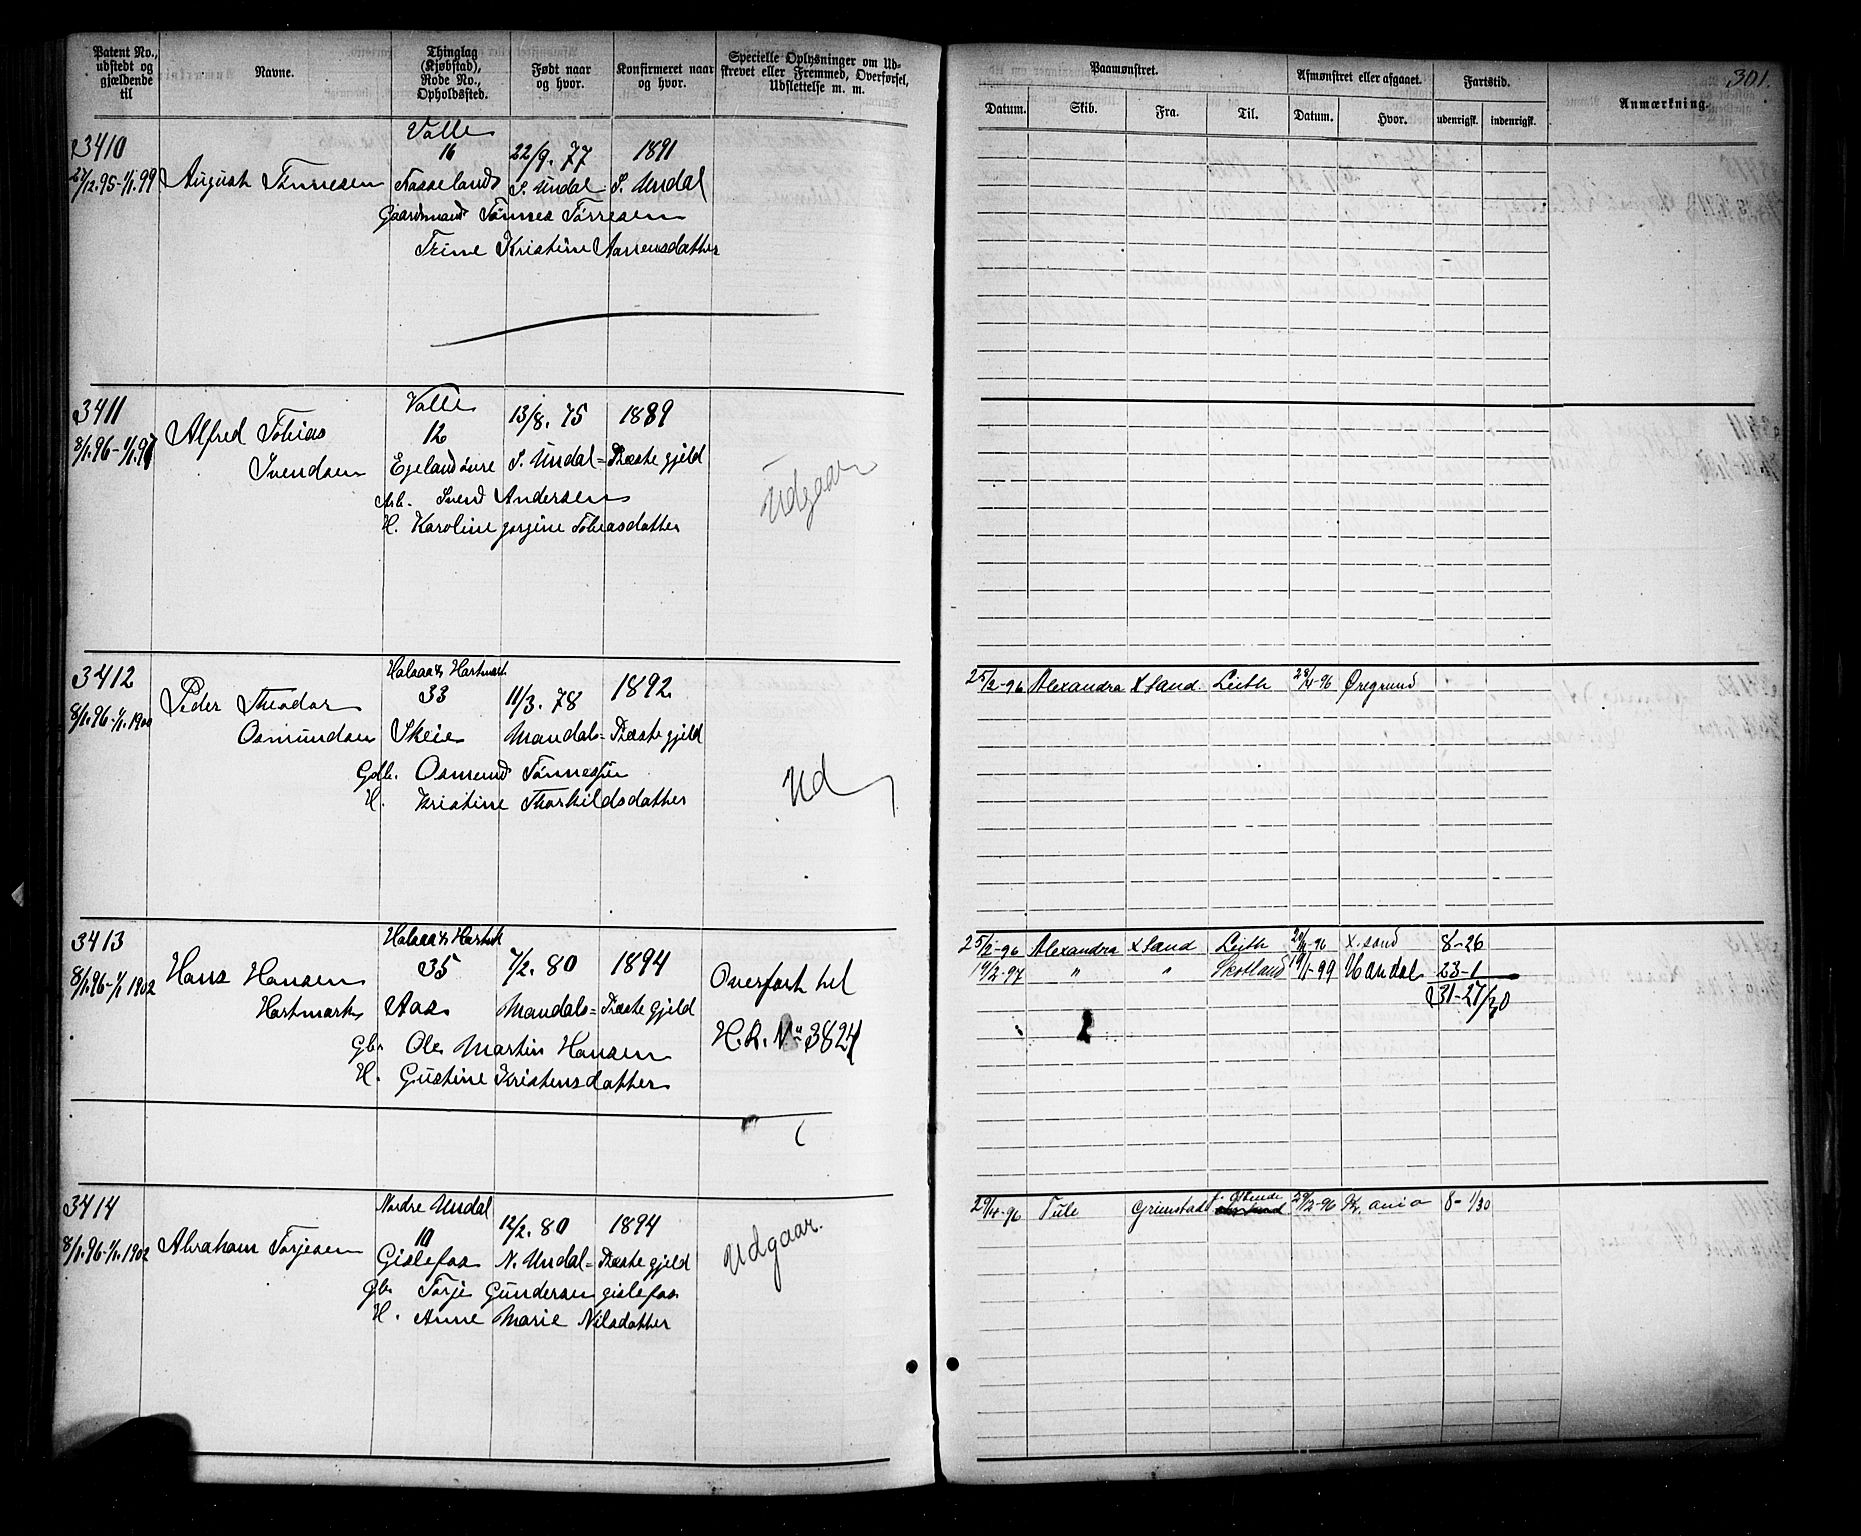 Patent No., udstedt og gjældende til
Navne.
Thinglag (Kjøbstad), Rode No., Opholdssted.
Født naar og hvor.
Konfirmeret naar og hvor.
Specielle Oplysninger om Udskrevet eller Fremmed, Overførsel, Udslettelse m. m.
Paamønstret.
Datum.
Skib.
Fra.
Til.
Afmønstret eller afgaaet.
Datum.
Hvor.
Fartstid.
udenrigsk.
indenrigsk.
Anmærkning.
301.
3410
Valle
16
22/9. 77
1891
27/12.95-1/1.99
August Tønnesen
S. Undal
S. Undal
Gaardmand Tønnes Tørresen
Trine Kristine Aanensdatter
3411
Valle
12
13/8. 75
1889
8/1.96-1/1.97
Alfred Tobias
Svendsen
Egeland øvre
S. Undal = Præstegjeld
Arb. Svend Andersen
H. Karoline Jorgine Tobiasdatter
Udgaar
3412
Halsaa & Hartmark
33
11/3. 78
1892
8/1.96-1/1.1900
Peder Theodor
Osmundsen
Skeie
Mandals = Præstegjeld
Gdb. Osmund Tønnessen
H. Kristine Thorkildsdatter
Ud
25/2-96 Alexandra X Sand. Leith 29/4-96 Øregrund
3413
Halsaa & Hartmk
35
7/2. 80
1894
8/1.96-1/1 1902
Hans Hansen
Hartmark
Aas
Mandals = Præstegjeld
Gbr Ole Martin Hansen
H. Gustine Kristensdatter
Overført til
H.R. No 3824
25/2-96 Alexandra X Sand Leith X. sand 8-26
14/2-97 " " Skotland 19/1-99 Mandal 23-1
31-27/30
3414
Nordre Undal
10
12/2. 80
1894
8/1.96-1/1.1902
Abraham Torjesen
Gislefos
N. Undal = Præstegjeld
Gbr Torje Gundersen Gislefos
H. Anne Marie Nilsdatter
Udgaar.
29/4-96 Tule Grimstad 29/12-96 8-1/30